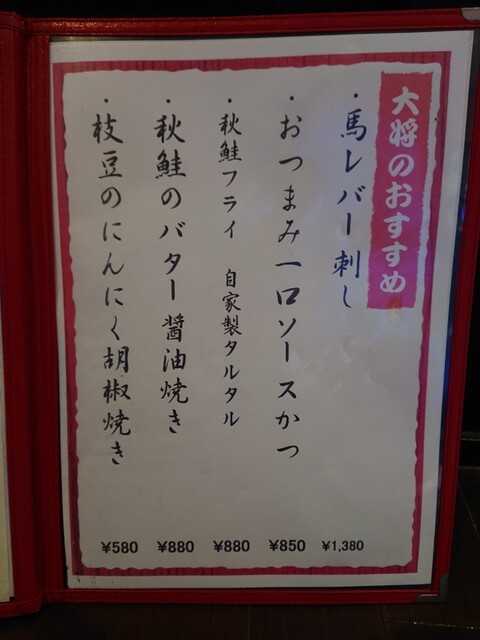 大将のおすすめ
・馬レバー刺し
¥1,380
・おつまみ一口ソースかつ
¥850
・秋鮭フライ 自家製タルタル
¥880
・秋鮭のバター醤油焼き
¥880
・枝豆のにんにく胡椒焼き
¥580